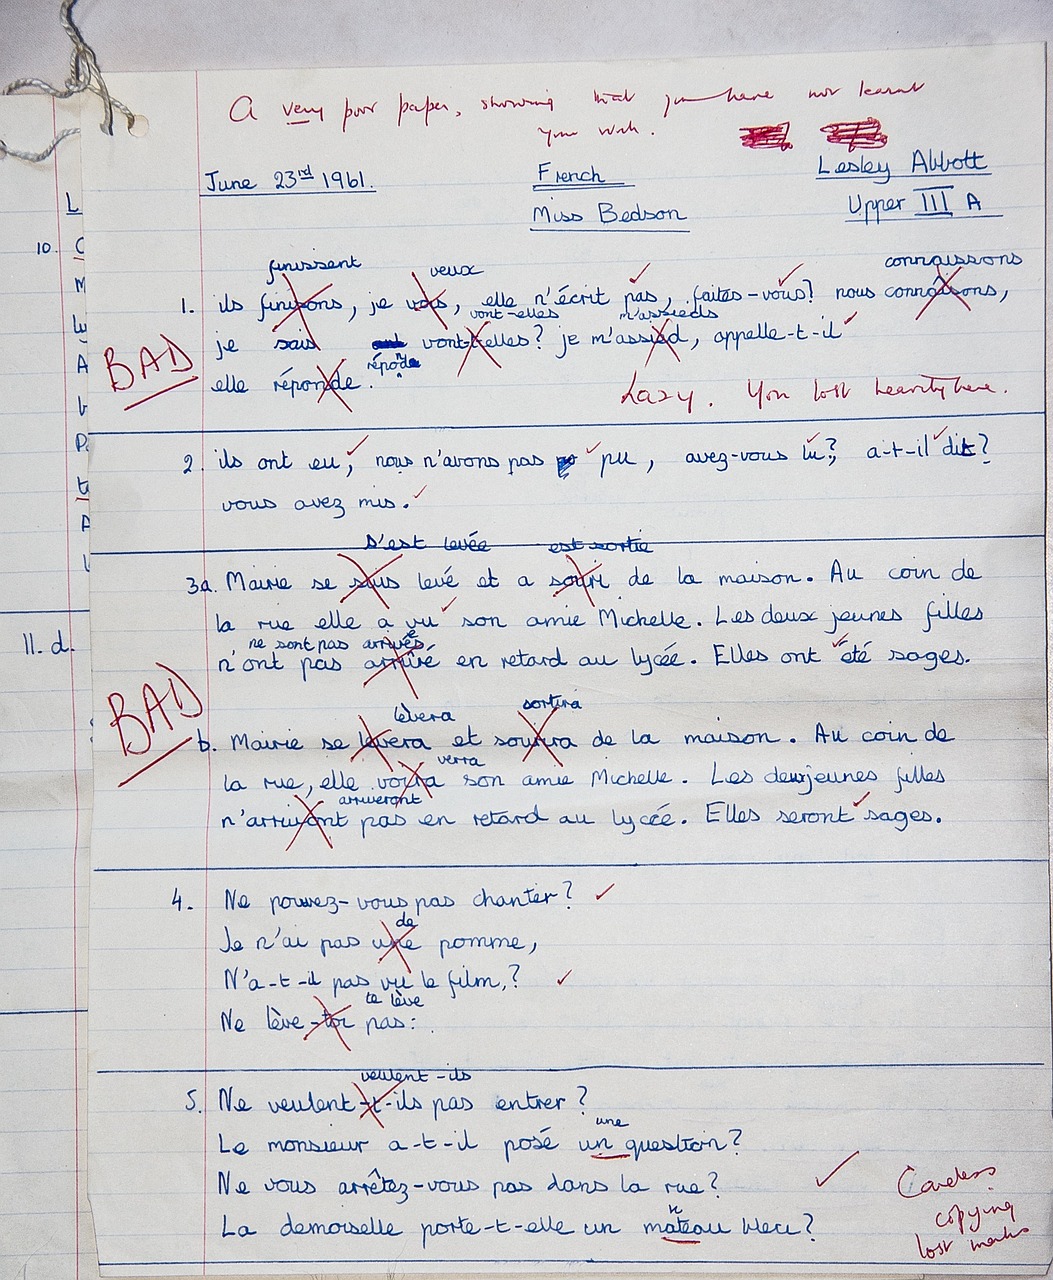 A very poor paper, showing that you have not learnt
your work.
June 23rd 1961.
French
Lesley Abbott
Miss Bedson
Upper III A
finissent veux connaissons
1. ils finisons, je vois, elle n'écrit pas, faites-vous? nous connaisons,
vont-elles m'assieds
je sais vont-t-elles? je m'assied, appelle-t-il
BAD
répond
elle réponde.
Lazy. You lost heavily here.
2. ils ont eu, nous n'avons pas pu, avez-vous lu? a-t-il dit?
vous avez mis.
s'est levée est sortie
3a. Mairie se suis levé et a souri de la maison. Au coin de
la rue elle a vu son amie Michelle. Les deux jeunes filles
ne sont pas arrivées
n'ont pas arrivé en retard au lycée. Elles ont été sages.
BAD
lèvera sortira
b. Mairie se levera et sourira de la maison. Au coin de
verra
la rue, elle voira son amie Michelle. Les deux jeunes filles
arriveront
n'arrivont pas en retard au lycée. Elles seront sages.
4. Ne pouvez-vous pas chanter?
de
Je n'ai pas une pomme,
N'a-t-il pas vu le film,?
te lève
Ne lève-toi pas:
veulent-ils
5. Ne veulent-t-ils pas entrer?
une
Le monsieur a-t-il posé un question?
Ne vous arrêtez-vous pas dans la rue?
n
La demoiselle porte-t-elle un mateau bleu?
Careless
copying
lost marks
10.
L
C
M
A
11. d.